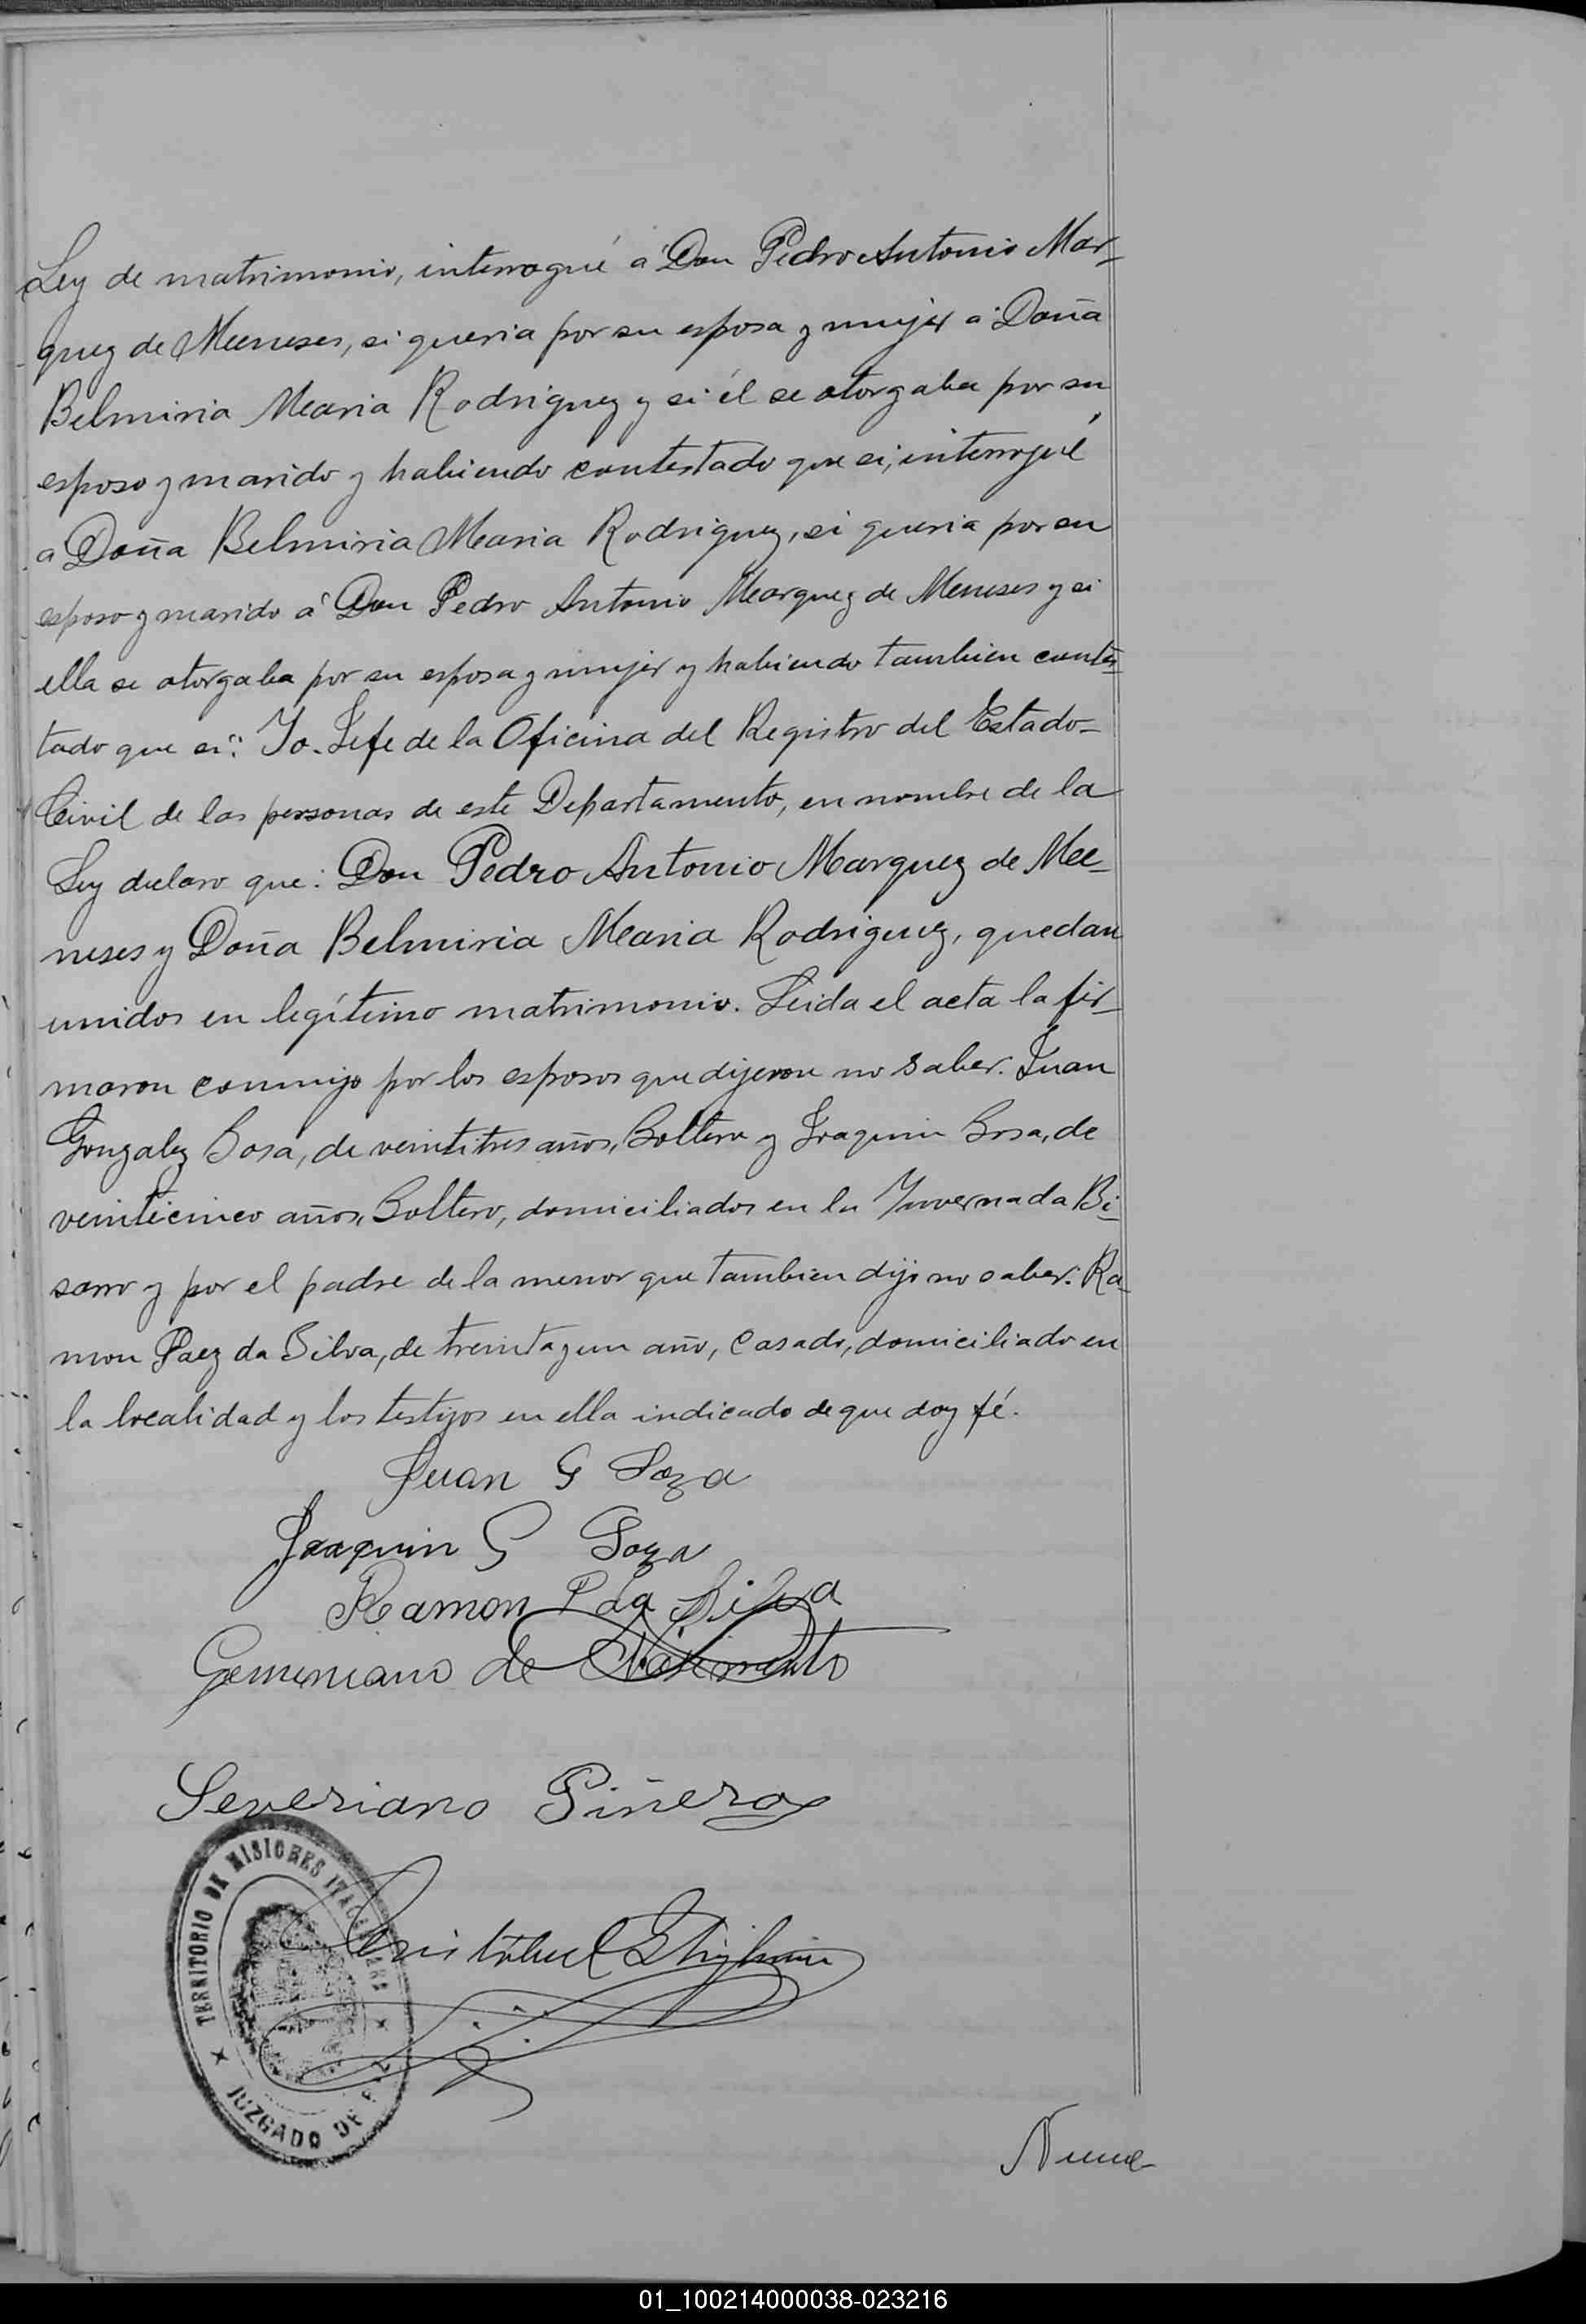 Ley de matrimonio, interrogué á Don Pedro Antonio Mar-
quez de Meneses, si queria por su esposa y mujer a Doña
Belmiria Maria Rodriguez y si él se otorgaba por su
esposo y marido y habiendo contestado que si, interrogué
a Doña Belmiria Maria Rodriguez, si queria por su
esposo y marido á Don Pedro Antonio Marquez de Meneses y si
ella se otorgaba por su esposa y mujer y habiendo tambien contes-
tado que si: Yo Jefe de la Oficina del Registro del Estado-
Civil de las personas de este Departamento, en nombre de la
Ley declaro que: Don Pedro Antonio Marquez de Me-
neses y Doña Belmiria Maria Rodriguez, quedan
unidos en legítimo matrimonio. Leida el acta la fir-
maron conmigo por los esposos que dijeron no saber. Juan
Gonzalez Sosa, de veintitres años, Soltero y Joaquin Sosa, de
veinticinco años, Soltero, domiciliados en la Invernada Bi-
sarro y por el padre de la menor que tambien dijo no saber: Ra-
mon Paez da Silva, de treinta y un año, Casado, domiciliado en
la localidad y los testigos en ella indicado de que doy fé.
Juan G Soza
Joaquin G Soza
Ramon P da Silva
Geminiano de Nacimento
Severiano Piñero
Cristóbal
TERRITORIO DE MISIONES ITACARUARE
JUZGADO DE PAZ
Nume-
01_100214000038-023216